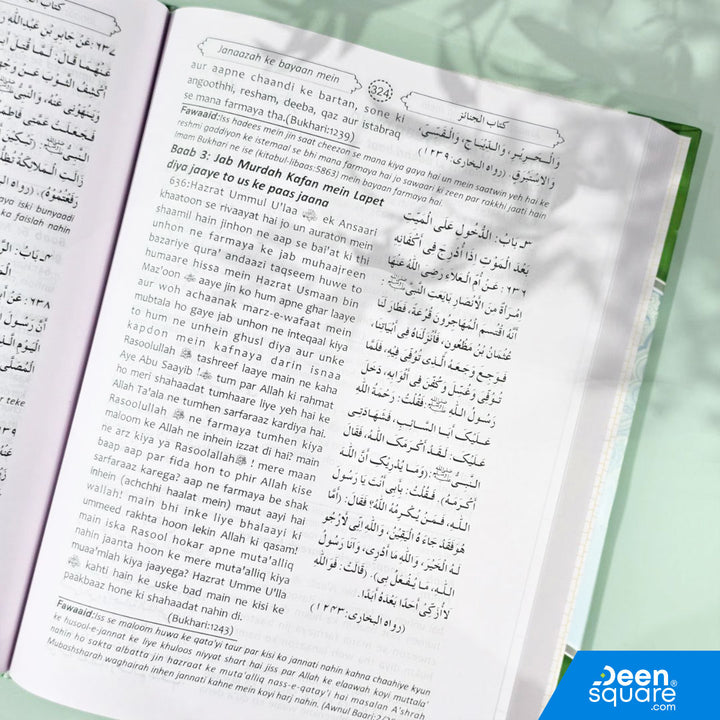 Janaazah ke bayaan mein
324
كتاب الجنائز
aur aapne chaandi ke bartan, sone ki
angoothhi, resham, deeba, qaz aur istabraq
se mana farmaya tha.(Bukhari:1239)
وَالْحَرِيْرِ، وَالدِّيْبَاجِ، وَالْقَسِّيِّ
وَالْاِسْتَبْرَقِ. (رواه البخاری: ۱۲۳۹)
Fawaaid:Iss hadees mein jin saat cheezon se mana kiya gaya hai un mein saatwin yeh hai ke
reshmi gaddiyon ke istemaal se bhi mana farmaya hai jo sawaari ki zeen par rakkhi jaati hain
Imam Bukhari ne ise (kitabul-libaas:5863) mein bayaan farmaya hai.
Baab 3: Jab Murdah Kafan mein Lapet
diya jaaye to us ke paas jaana
636:Hazrat Ummul U'laa ek Ansaari
khaatoon se rivaayat hai jo un auraton mein
shaamil hain jinhon ne aap se bai'at ki thi
unhon ne farmaya ke jab muhaajreen
bazariye qura' andaazi taqseem huwe to
humaare hissa mein Hazrat Usmaan bin
Maz'oon aaye jin ko hum apne ghar laaye
aur woh achaanak marz-e-wafaat mein
mubtala ho gaye jab unhon ne inteqaal kiya
to hum ne unhein ghusl diya aur unke
kapdon mein kafnaya darin isnaa
Rasoolullah ﷺ tashreef laaye main ne kaha
Aye Abu Saayib ! tum par Allah ki rahmat
ho meri shahaadat tumhaare liye yeh hai ke
Allah Ta'ala ne tumhen sarfaraaz kardiya hai.
Rasoolullah ﷺ ne farmaya tumhen kiya
maloom ke Allah ne inhein izzat di hai? main
ne arz kiya ya Rasoolallahﷺ ! mere maan
baap aap par fida hon to phir Allah kise
sarfaraaz karega? aap ne farmaya be shak
inhein (achchhi haalat mein) maut aayi hai
wallah! main bhi inke liye bhalaayi ki
ummeed rakhta hoon lekin Allah ki qasam!
main iska Rasool hokar apne muta'alliq
nahin jaanta hoon ke mere muta'alliq kiya
muaa'mlah kiya jaayega? Hazrat Umme U'lla
kahti hain ke uske bad main ne kisi ke
paakbaaz hone ki shahaadat nahin di.
(Bukhari:1243)
۳ـ بَابُ: الدُّخُوْلِ عَلَى الْمَيِّتِ
بَعْدَ الْمَوْتِ اِذَا اُدْرِجَ فِى اَكْفَانِهٖ
۶۳۶: عَنْ اُمِّ الْعَلَاءِ رضى اللّٰهُ عَنْهَا
اِمْرَأَةٍ مِنَ الْاَنْصَارِ بَايَعَتِ النَّبِىَّ ﷺ:
اَنَّهُ اقْتُسِمَ الْمُهَاجِرُوْنَ قُرْعَةً، فَطَارَ لَنَا
عُثْمَانُ بْنُ مَظْعُوْنٍ، فَاَنْزَلْنَاهُ فِى اَبْيَاتِنَا،
فَوَجِعَ وَجَعَهُ الَّذِى تُوُفِّىَ فِيْهِ، فَلَمَّا
تُوُفِّىَ وَغُسِّلَ وَكُفِّنَ فِى اَثْوَابِهٖ، دَخَلَ
رَسُوْلُ اللّٰهِ ﷺ فَقُلْتُ: رَحْمَةُ اللّٰهِ
عَلَيْكَ اَبَا السَّائِبِ، فَشَهَادَتِى
عَلَيْكَ: لَقَدْ اَكْرَمَكَ اللّٰهُ، فَقَالَ
النَّبِىُّ ﷺ: (وَمَا يُدْرِيْكِ اَنَّ اللّٰهَ
اَكْرَمَهُ). فَقُلْتُ: بِاَبِى اَنْتَ يَا رَسُوْلَ
اللّٰهِ، فَمَنْ يُكْرِمُهُ اللّٰهُ؟ فَقَالَ: (اَمَّا
هُوَ فَقَدْ جَاءَهُ الْيَقِيْنُ، وَاللّٰهِ اِنِّى لَاَرْجُوْ
لَهُ الْخَيْرَ، وَاللّٰهِ مَا اَدْرِى، وَاَنَا رَسُوْلُ
اللّٰهِ، مَا يُفْعَلُ بِى). قَالَتْ: فَوَاللّٰهِ
لَا اُزَكِّى اَحَدًا بَعْدَهُ اَبَدًا.
(رواه البخاری: ۱۲۴۳)
Fawaaid:Iss se maloom huwa ke qata'yi taur par kisi ka jannati nahin kahna chaahiye kyun
ke husool-e-jannat ke liye khuloos niyyat shart hai jiss par Allah ke elaawah koyi muttala'
nahin ho sakta albatta jin hazraat ke muta'alliq nass-e-qatay'i hai masalan A'shrah
Mubashsharah waghairah inhen jannati kahne mein koyi harj nahin. (Awnul Baari:2/
Deen
square®
.com